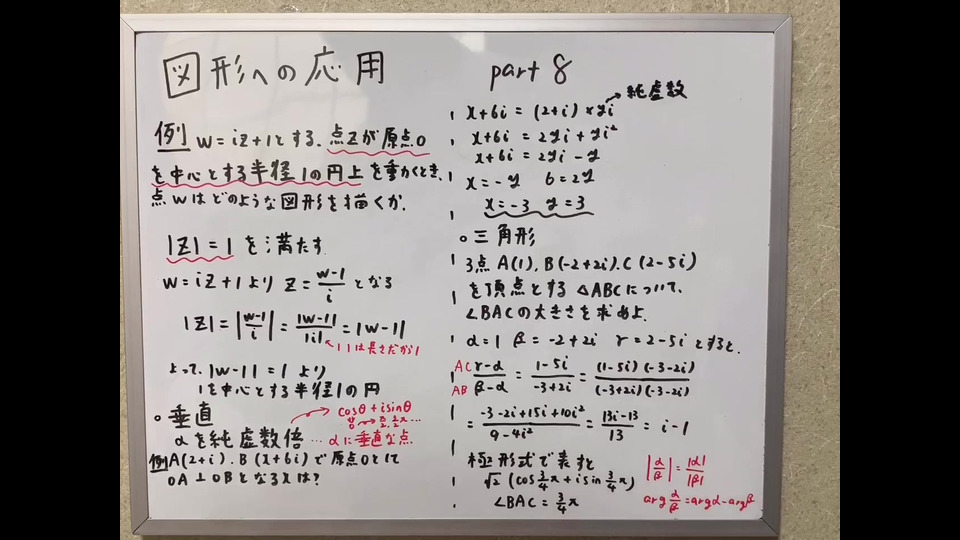 図形への応用 part 8
例 w=iz+1とする。点zが原点O
を中心とする半径1の円上を動くとき、
点wはどのような図形を描くか。
|z|=1 を満たす
w=iz+1より z=\frac{w-1}{i} となる
|z|=|\frac{w-1}{i}|=\frac{|w-1|}{|i|}=|w-1|
||は長さだから1
よって、|w-1|=1 より
1を中心とする半径1の円
○垂直
cosθ+isinθ
αを純虚数倍 … αに垂直な点
例 A(2+i). B(x+6i)で原点Oとして
OA⊥OBとなるxは?
x+6i=(2+i)×yi → 純虚数
x+6i=2yi+yi²
x+6i=2yi-y
x=-y 6=2y
x=-3 y=3
○三角形
3点 A(1). B(-2+2i). C(2-5i)
を頂点とする△ABCについて、
∠BACの大きさを求めよ.
α=1 β=-2+2i γ=2-5iとすると、
AC AB \frac{γ-α}{β-α}=\frac{1-5i}{-3+2i}=\frac{(1-5i)(-3-2i)}{(-3+2i)(-3-2i)}
=\frac{-3-2i+15i+10i²}{9-4i²}=\frac{13i-13}{13}=i-1
極形式で表すと
√2(cos\frac{3}{4}π+isin\frac{3}{4}π)
∠BAC=\frac{3}{4}π
|\frac{α}{β}|=\frac{|α|}{|β|}
arg\frac{α}{β}=argα-argβ